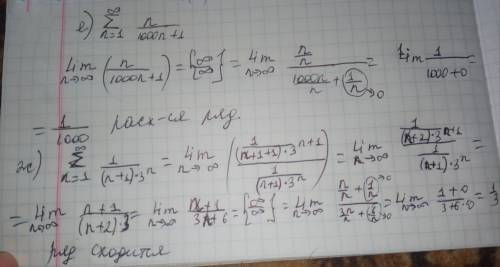 е) ∑_{n=1}^{∞} n/(1000n+1)
lim_{n→∞} (n/(1000n+1)) = {∞/∞} = lim_{n→∞} (n/n)/(1000n/n + 1/n→0) = lim 1/(1000+0) =
= 1/1000 расх-ся ряд.
2с) ∑_{n=1}^{∞} 1/((n+1)·3^n) = lim_{n→∞} ((1/((n+1+1)·3^{n+1}))/(1/((n+1)·3^n))) = lim_{n→∞} (1/((n+2)·3^{n+1}))/(1/((n+1)·3^n)) =
= lim_{n→∞} (n+1)/((n+2)·3) = lim_{n→∞} (n+1)/(3n+6) = {∞/∞} = lim_{n→∞} (n/n + 1/n→0)/(3n/n + 6/n→0) = lim_{n→∞} (1+0)/(3+6·0) = 1/3
ряд сходится